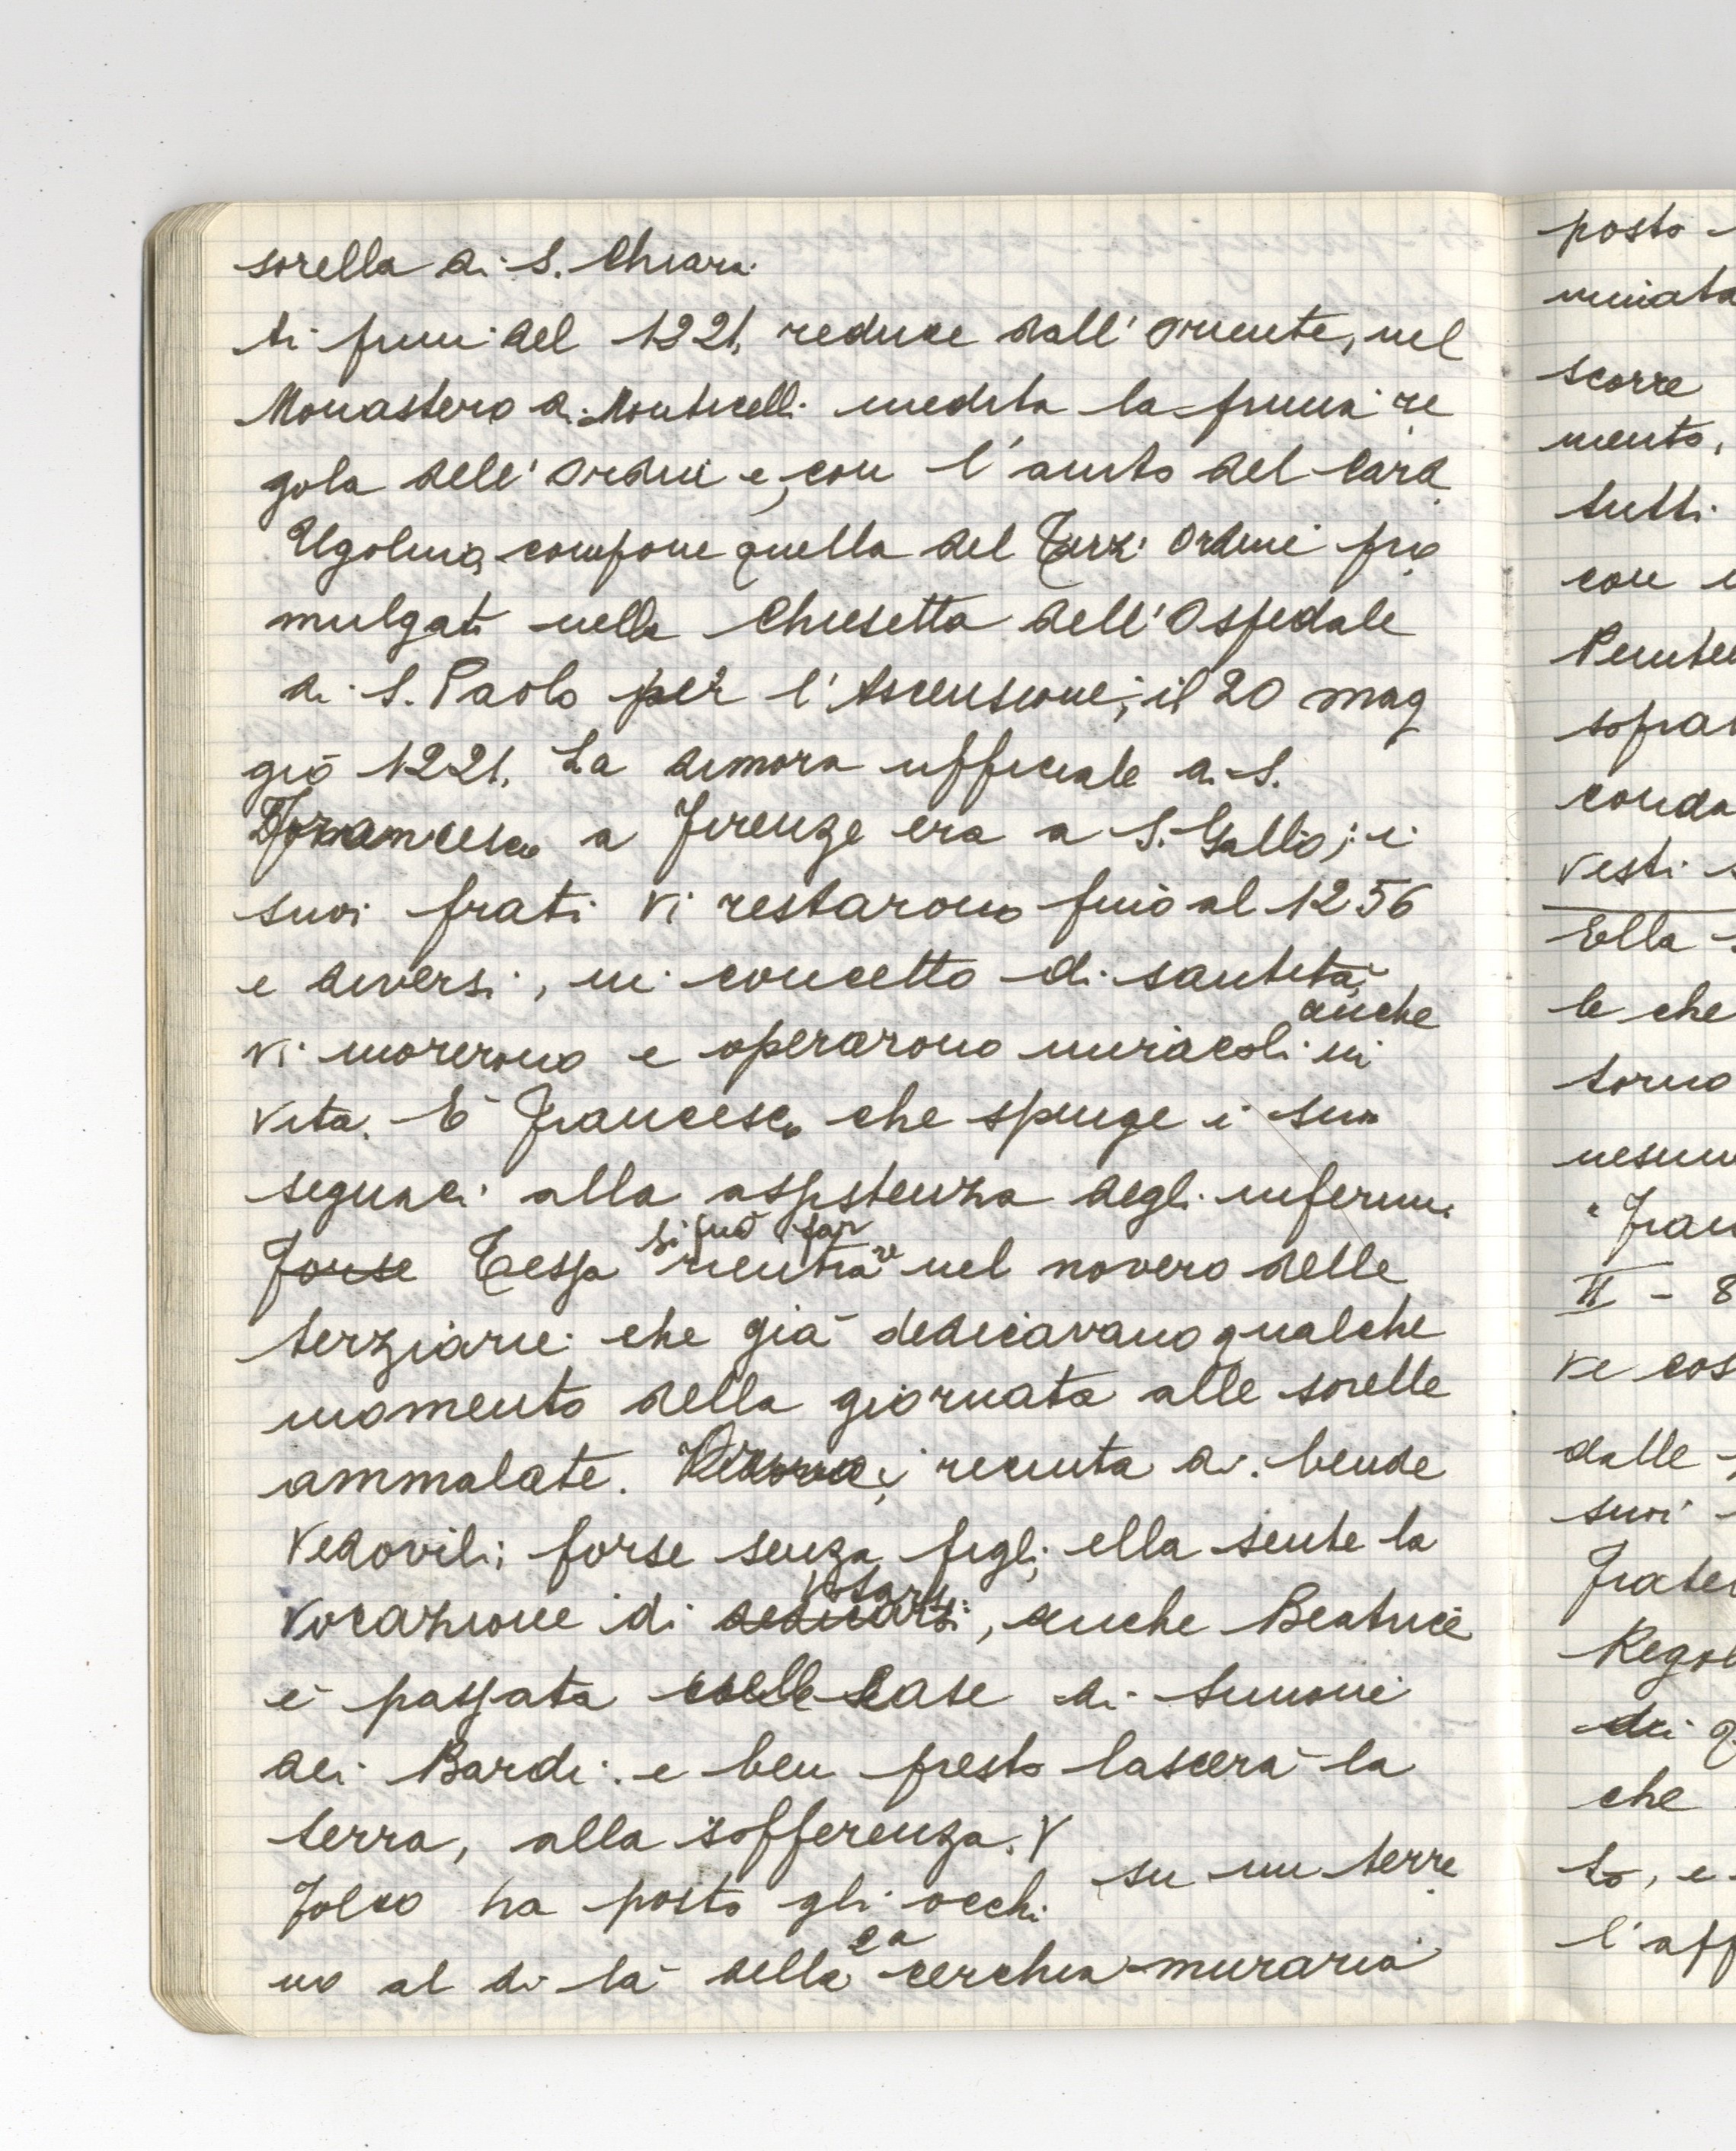 sorella di S. Chiara.
Ai primi del 1221, reduce dall'oriente, nel
Monastero di Monticelli medita la prima re
gola dell'ordine e, con l'aiuto del Card.
Ugolino, compone quella del Terz'ordine pro
mulgata nella Chiesetta dell'Ospedale
di S. Paolo per l'Ascensione, il 20 mag
gio 1221. La dimora ufficiale di S.
Francesco a Firenze era a S. Gallo; i
suoi frati vi restarono fino al 1256
e diversi, in concetto di santità,
anche
vi morirono e operarono miracoli in
vita. È Francesco che spinge i suoi
seguaci alla assistenza degli infermi.
si può far
Forse Tessa rientrare nel novero delle
terziarie che già dedicavano qualche
momento della giornata alle sorelle
ammalate. recinta di bende
vedovili; forse senza figli, ella sente la
votarsi
vocazione di dedicarsi, anche Beatrice
è passata case di Simone
dei Bardi e ben presto lascerà la
terra, alla sofferenza. V
Folco ha posto gli occhi su un terre
ca
no al di là della cerchia muraria
posto
miata
scorre
mento,
tutti
con
Peniten
sopra
conda
vesti
Ella
le che
torno
nessun
"Fran
II - 8
ve cos
dalle
suoi
Frate
Rego
dei
che
to, e
l'aff